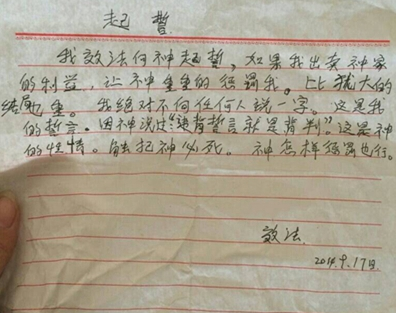 起誓
我效法向神起誓，如果我出卖神家
的利益，让神重重的惩罚我。比犹大的
结局重。我绝对不向任何人说一字。这是我
的誓言。因神说过“违背誓言就是背判”。这是神
的性情。触犯神必死。神怎样惩罚也行。
效法
2014.9.17日